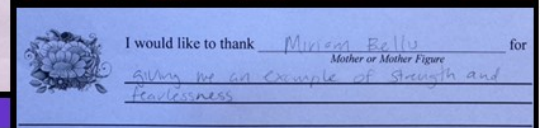 I would like to thank Miriam Bellu for
Mother or Mother Figure
giving me an example of strength and
fearlessness